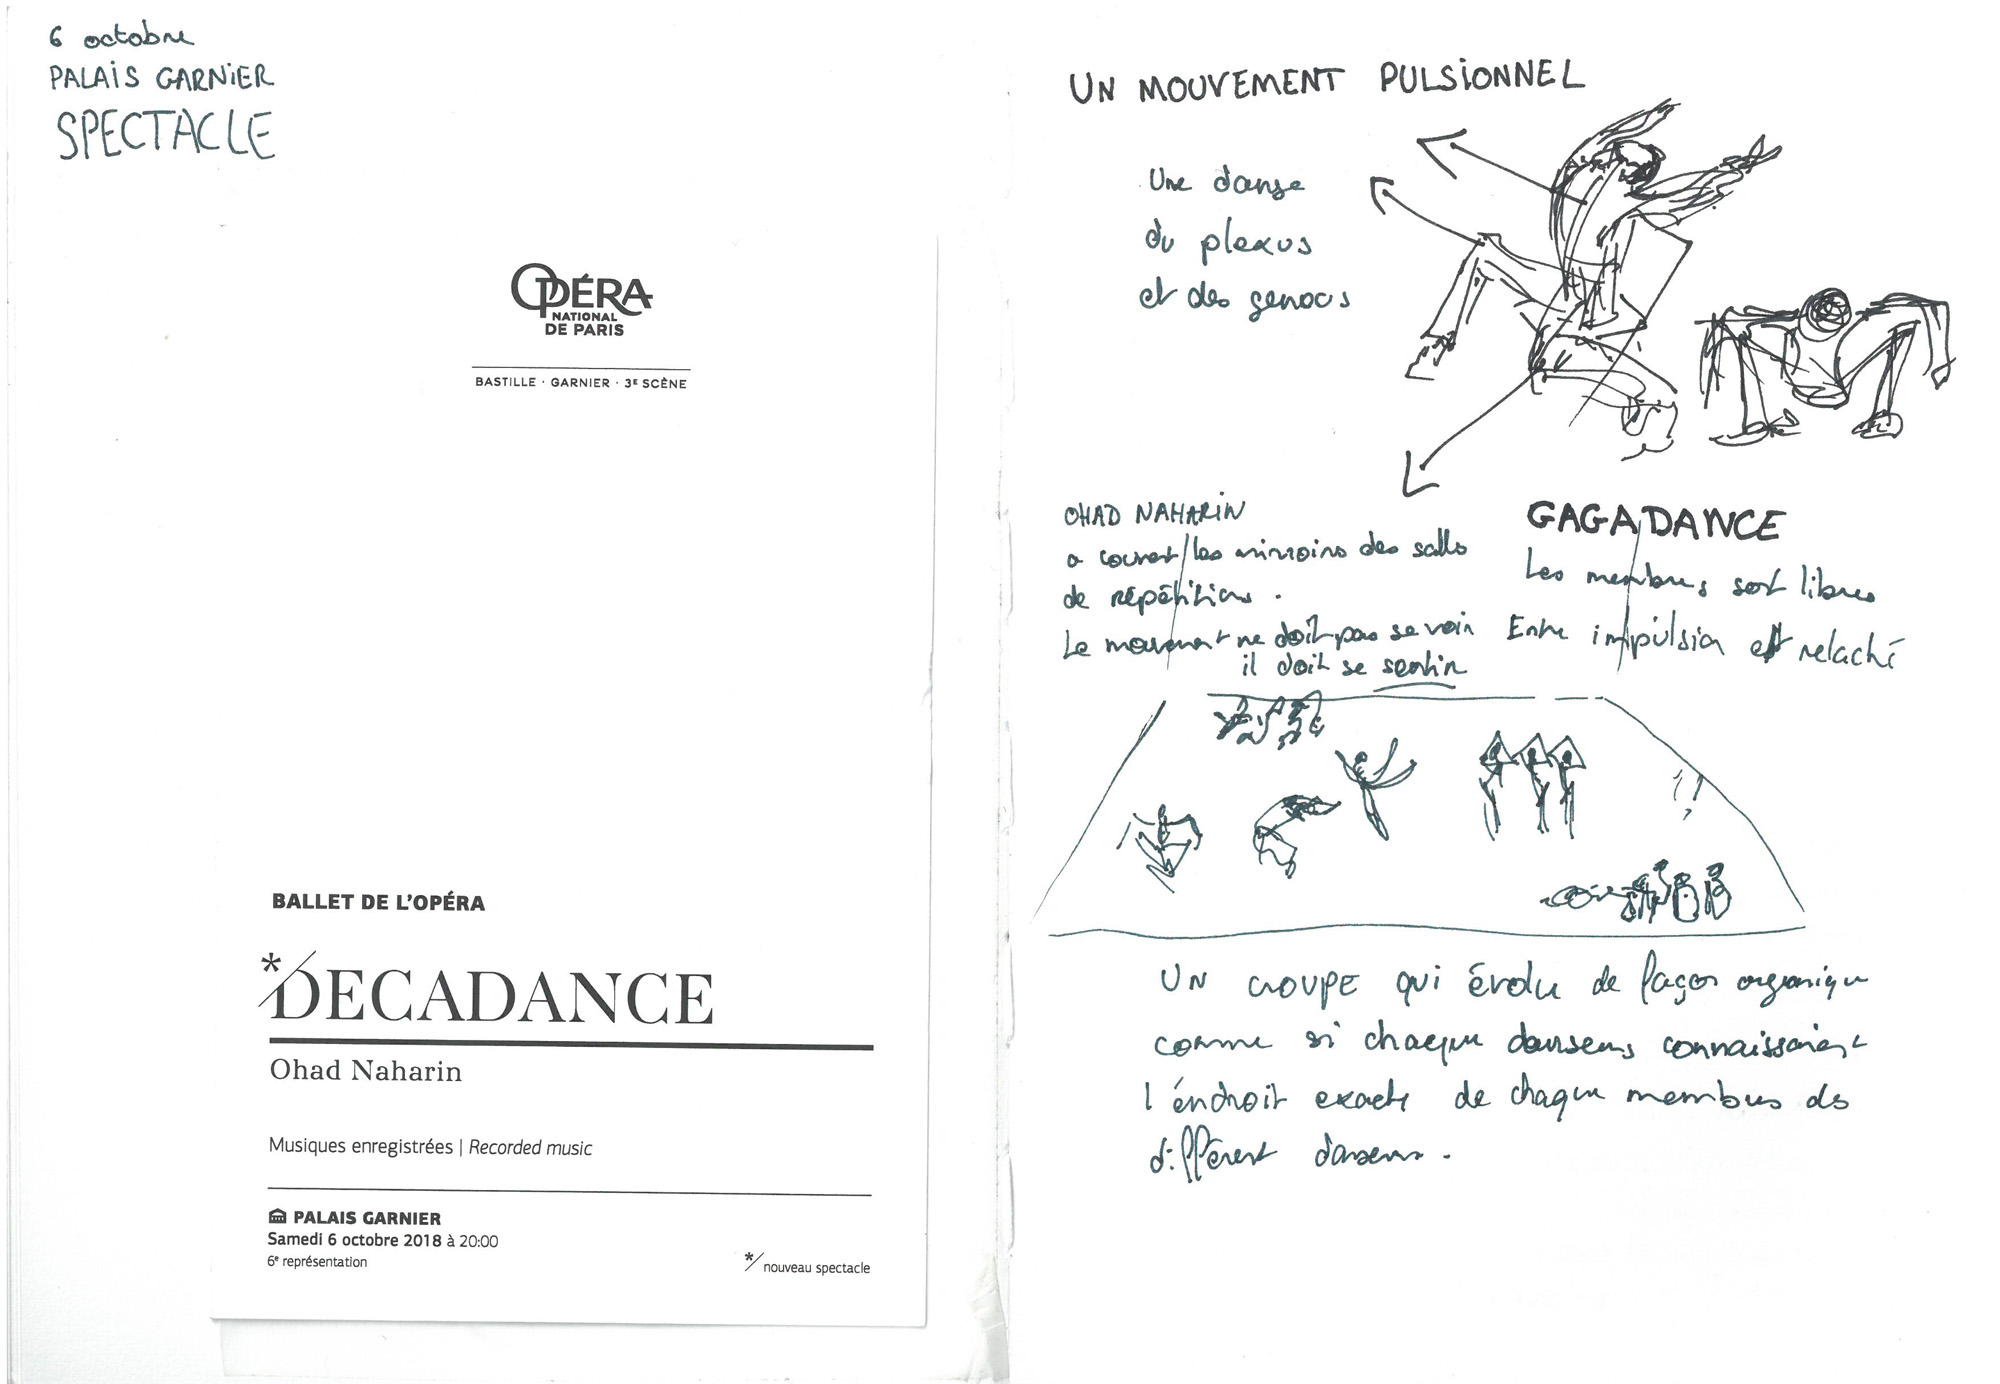 6 octobre
PALAIS GARNIER
SPECTACLE
OPÉRA
NATIONAL
DE PARIS
BASTILLE · GARNIER · 3E SCÈNE
BALLET DE L'OPÉRA
*DECADANCE
Ohad Naharin
Musiques enregistrées | Recorded music
PALAIS GARNIER
Samedi 6 octobre 2018 à 20:00
6e représentation
*/ nouveau spectacle
UN MOUVEMENT PULSIONNEL
Une danse
du plexus
et des genous
OHAD NAHARIN
a couvert les mirroirs des salls
de répétitions.
Le mouvement ne doit pas se voir
il doit se sentir
GAGADANCE
Les membres sont libres
Entre impulsion et relaché
UN GROUPE qui évolu de façon organique
comme si chaque danseurs connaissaient
l'éndroit exacte de chaque membres des
différent danseurs.